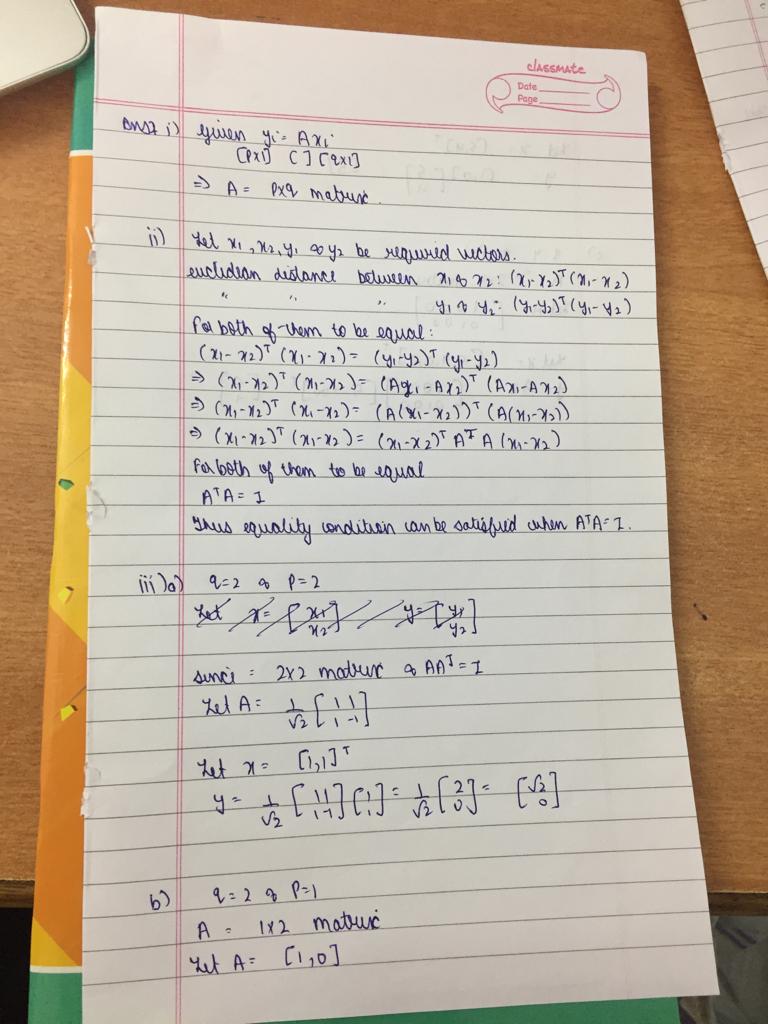 classmate
Date
Page
Ans7 i) Given yi = Axi
[Px1] [ ] [qx1]
⇒ A = Pxq matrix.
ii) Let x1, x2, y1 & y2 be required vectors.
euclidean distance between x1 & x2 : (x1-x2)ᵀ(x1-x2)
" " " y1 & y2 : (y1-y2)ᵀ(y1-y2)
For both of them to be equal :
(x1-x2)ᵀ (x1-x2) = (y1-y2)ᵀ (y1-y2)
⇒ (x1-x2)ᵀ (x1-x2) = (Ax1-Ax2)ᵀ (Ax1-Ax2)
⇒ (x1-x2)ᵀ (x1-x2) = (A(x1-x2))ᵀ (A(x1-x2))
⇒ (x1-x2)ᵀ (x1-x2) = (x1-x2)ᵀ AᵀA (x1-x2)
For both of them to be equal
AᵀA = I
Thus equality condition can be satisfied when AᵀA = I.
iii) a) q=2 & P=2
Let x = [x1 x2] y = [y1 y2]
since = 2x2 matrix & AAᵀ = I
Let A = 1/√2 [1 1 1 -1]
Let x = [1,1]ᵀ
y = 1/√2 [1 1 1 -1] [1 1] = 1/√2 [2 0] = [√2 0]
b) q=2 & P=1
A = 1x2 matrix
Let A = [1,0]